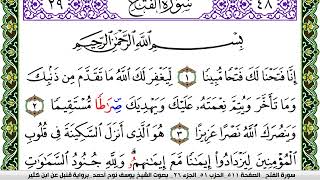 ٢٩ سورة الفتح ٤٨
بِسْمِ اللَّهِ الرَّحْمَٰنِ الرَّحِيمِ
إِنَّا فَتَحْنَا لَكَ فَتْحًا مُّبِينًا ١ لِّيَغْفِرَ لَكَ اللَّهُ مَا تَقَدَّمَ مِن ذَنۢبِكَ
وَمَا تَأَخَّرَ وَيُتِمَّ نِعْمَتَهُۥ عَلَيْكَ وَيَهْدِيَكَ سِرَٰطًا مُّسْتَقِيمًا ٢
وَيَنصُرَكَ اللَّهُ نَصْرًا عَزِيزًا ٣ هُوَ الَّذِي أَنزَلَ السَّكِينَةَ فِي قُلُوبِ
الْمُؤْمِنِينَ لِيَزْدَادُوا إِيمَٰنًا مَّعَ إِيمَٰنِهِمُۥ وَلِلَّهِ جُنُودُ السَّمَٰوَٰتِ
سورة الفتح الصفحة ٥١١ الحزب ٥١ الجزء ٢٦ بصوت الشيخ يوسف نوح أحمد .برواية قنبل عن ابن كثير